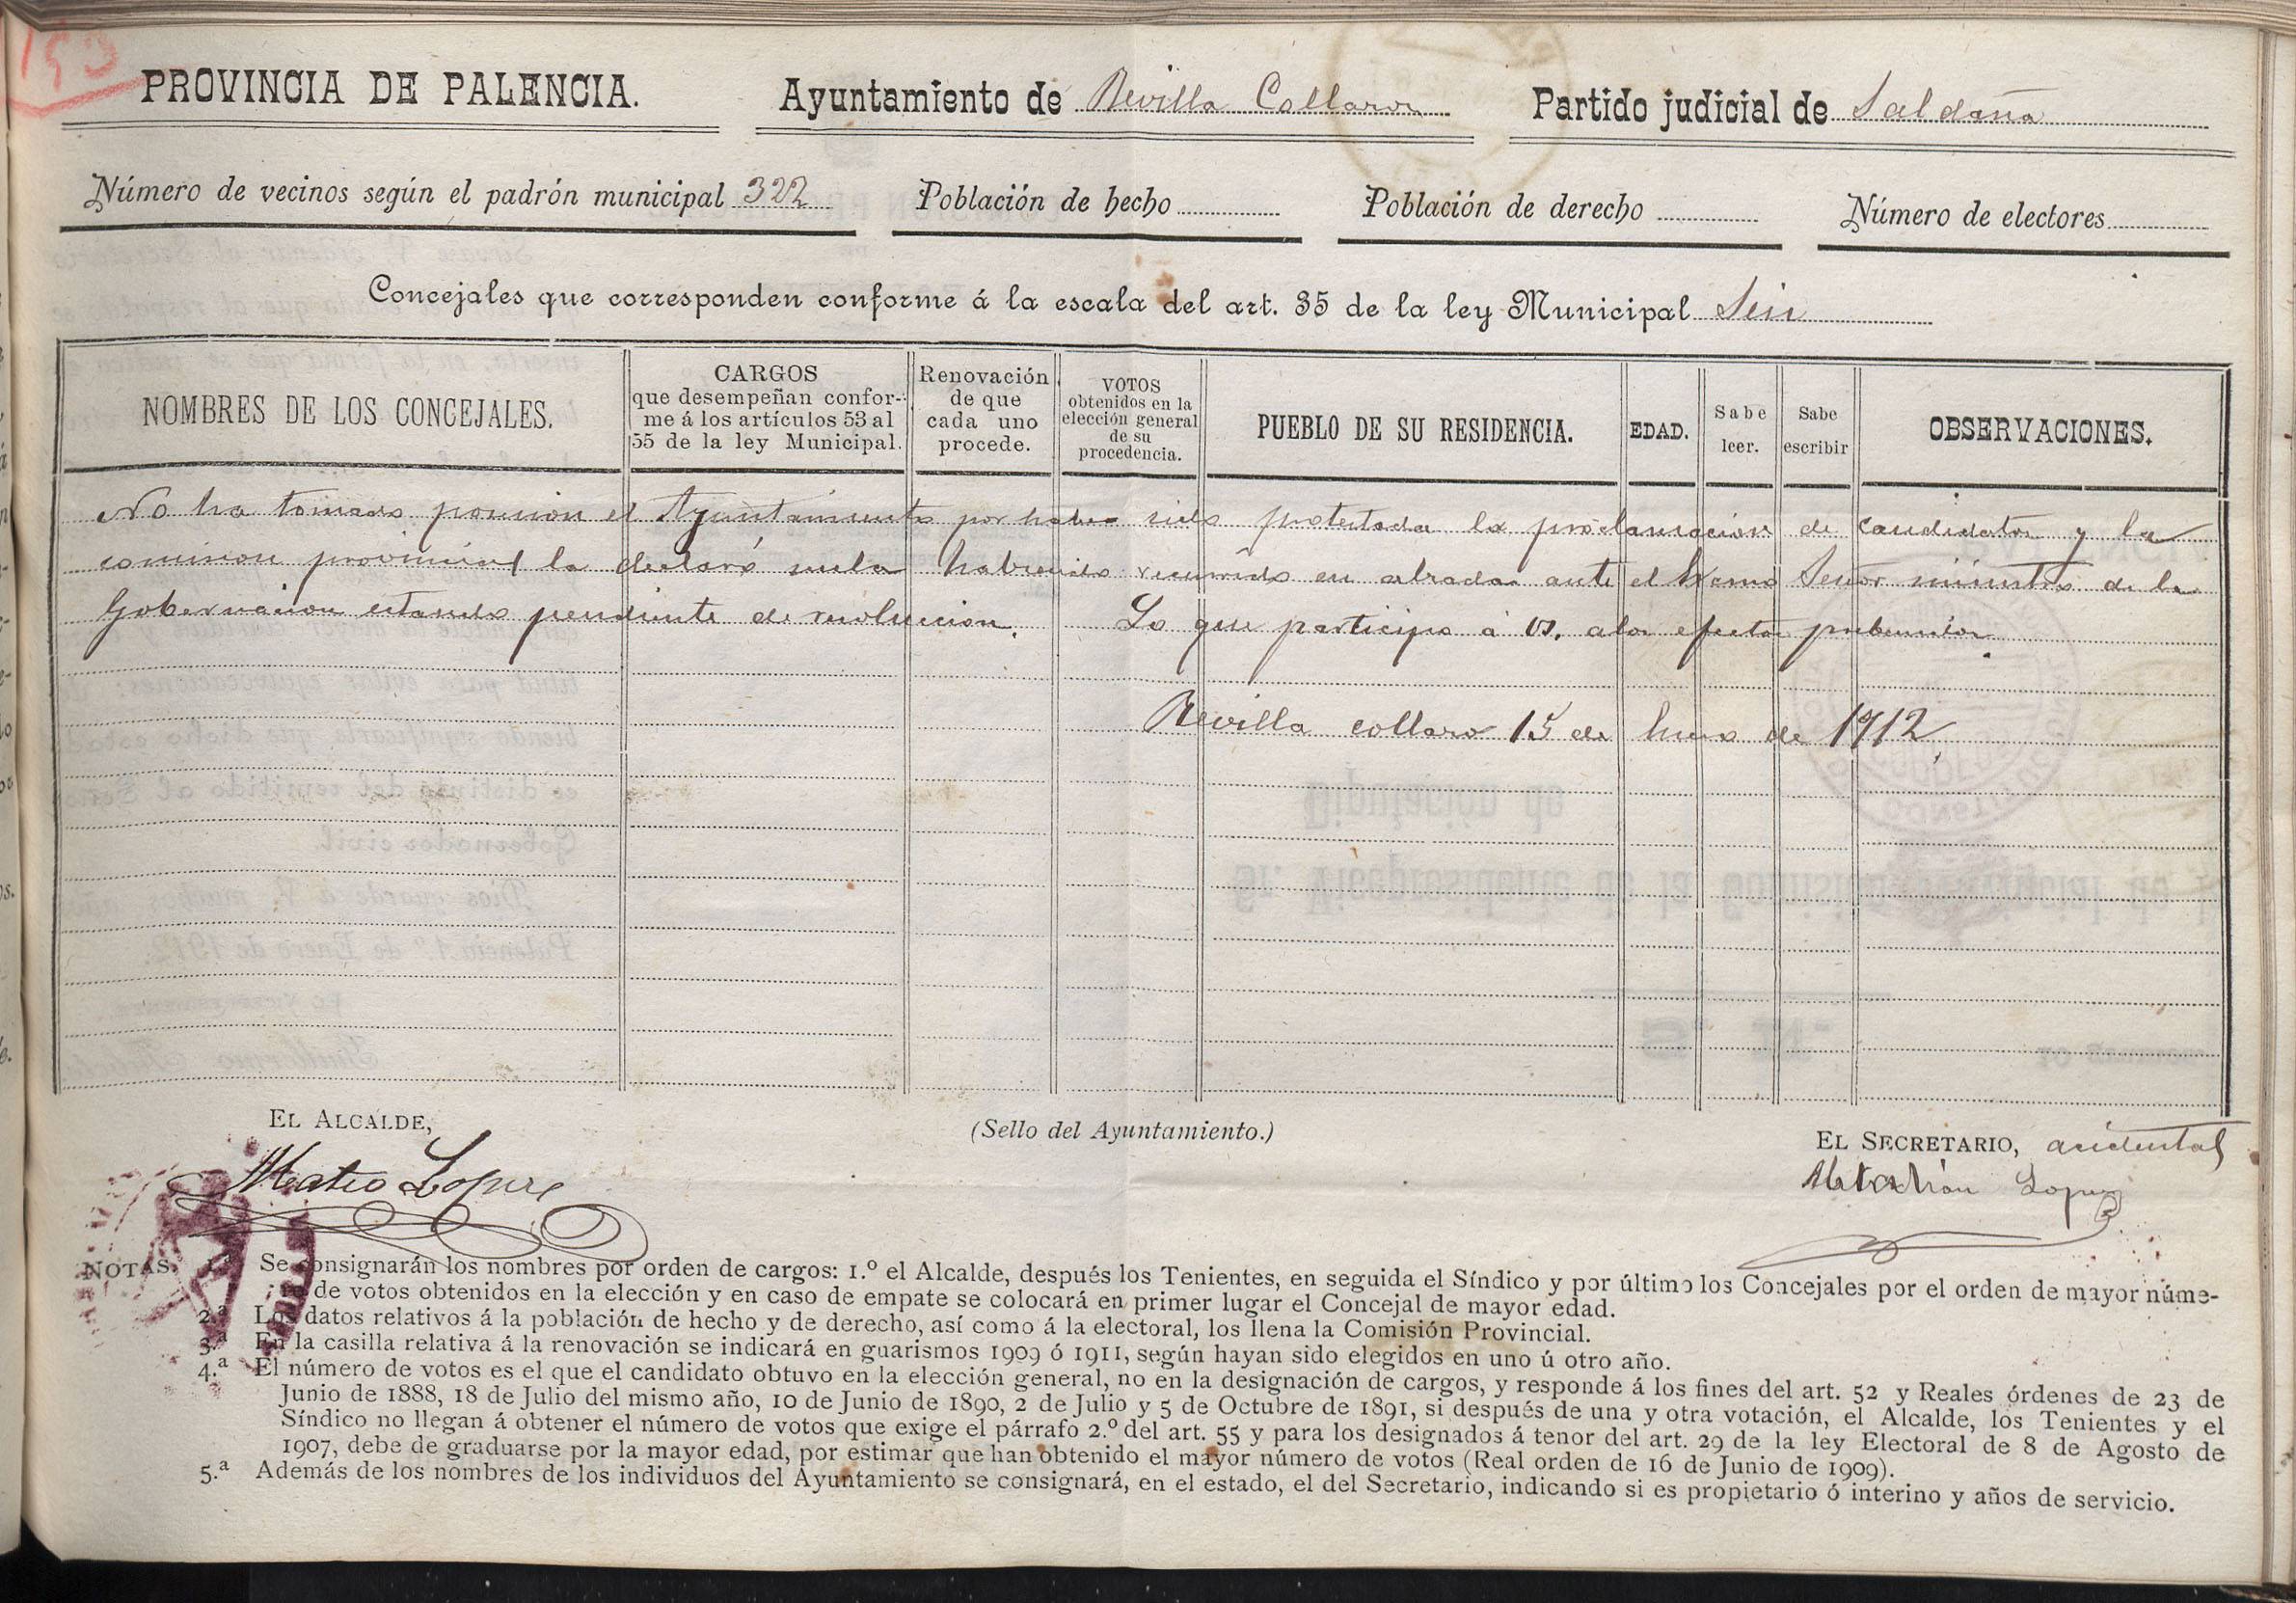 153
PROVINCIA DE PALENCIA.
Ayuntamiento de Revilla Collazos
Partido judicial de Saldaña
Número de vecinos según el padrón municipal 322
Población de hecho
Población de derecho
Número de electores
Concejales que corresponden conforme á la escala del art. 35 de la ley Municipal Seis
NOMBRES DE LOS CONCEJALES.
CARGOS
que desempeñan confor-
me á los artículos 53 al
55 de la ley Municipal.
Renovación
de que
cada uno
procede.
VOTOS
obtenidos en la
elección general
de su
procedencia.
PUEBLO DE SU RESIDENCIA.
EDAD.
Sabe
leer.
Sabe
escribir
OBSERVACIONES.
No ha tomado posesion el Ayuntamiento por haber sido protestada la proclamacion de candidatos y la
comision provincial la declaró nula habiendo recurrido en alzada ante el Exmo Señor ministro de la
Gobernacion estando pendiente de resolucion. Lo que participo a V. a los efectos
Revilla collazos 15 de Enero de 1912
EL ALCALDE,
Mateo Lopez
(Sello del Ayuntamiento.)
EL SECRETARIO, acidental
Lopez
NOTAS. 1.ª Se consignarán los nombres por orden de cargos: 1.º el Alcalde, después los Tenientes, en seguida el Síndico y por último los Concejales por el orden de mayor núme-
ro de votos obtenidos en la elección y en caso de empate se colocará en primer lugar el Concejal de mayor edad.
2.ª Los datos relativos á la población de hecho y de derecho, así como á la electoral, los llena la Comisión Provincial.
3.ª En la casilla relativa á la renovación se indicará en guarismos 1909 ó 1911, según hayan sido elegidos en uno ú otro año.
4.ª El número de votos es el que el candidato obtuvo en la elección general, no en la designación de cargos, y responde á los fines del art. 52 y Reales órdenes de 23 de
Junio de 1888, 18 de Julio del mismo año, 10 de Junio de 1890, 2 de Julio y 5 de Octubre de 1891, si después de una y otra votación, el Alcalde, los Tenientes y el
Síndico no llegan á obtener el número de votos que exige el párrafo 2.º del art. 55 y para los designados á tenor del art. 29 de la ley Electoral de 8 de Agosto de
1907, debe de graduarse por la mayor edad, por estimar que han obtenido el mayor número de votos (Real orden de 16 de Junio de 1909).
5.ª Además de los nombres de los individuos del Ayuntamiento se consignará, en el estado, el del Secretario, indicando si es propietario ó interino y años de servicio.